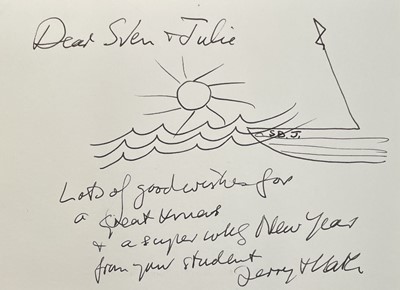 Dear Sven + Julie
S.B.J.
Lots of good wishes for
a great Xmas
& a super New Year
from your student
Jerry +